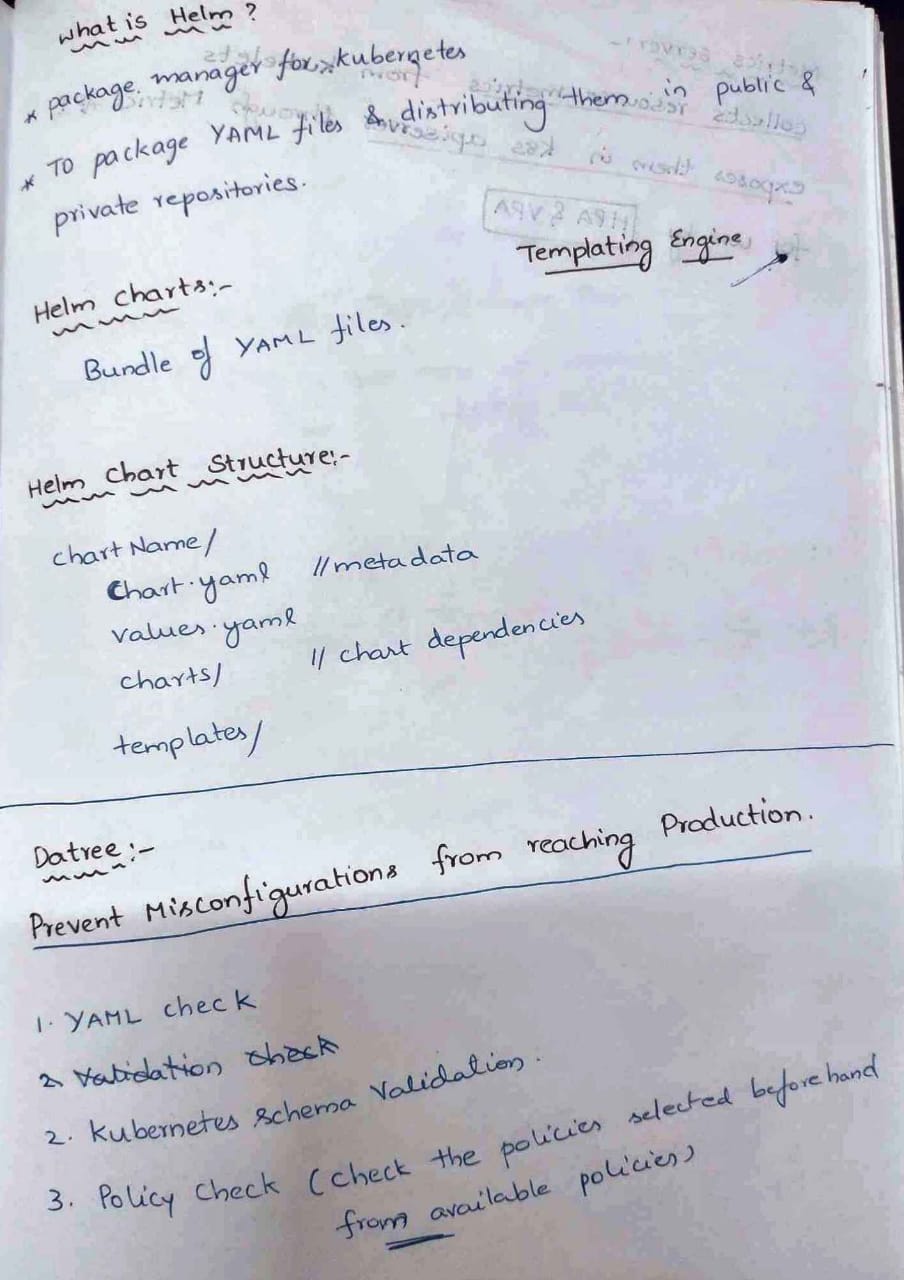 What is Helm ?
* package manager for kubernetes
* To package YAML files & distributing them in public &
private repositories.
Templating Engine
Helm Charts:-
Bundle of YAML files.
Helm Chart Structure:-
chart Name/
Chart.yaml //metadata
values.yaml
charts/ // chart dependencies
templates/
Datree:-
Prevent Misconfigurations from reaching Production.
1. YAML check
2 Validation check
2. Kubernetes Schema Validation.
3. Policy Check (Check the policies selected beforehand
from available policies)